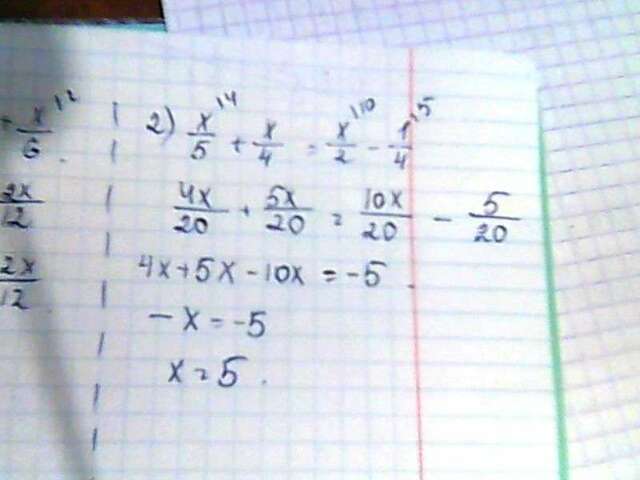 + x/6 \12
2x/12
2x/12
2) x/5 \4 + x/4 = x/2 \10 - 1/4 \5
4x/20 + 5x/20 = 10x/20 - 5/20
4x+5x-10x = -5
-x = -5
x = 5.